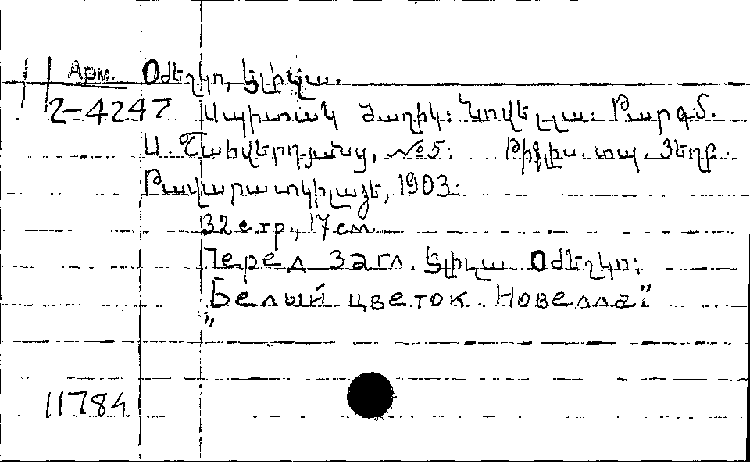 Арм. Օժեշկո, Էլիզա.
2-4247 Սպիտակ ծաղիկ: Նովելլա: Թարգմ.
Ա. Շահվերդյանց, №5: Թիֆլիս. տպ. Ցեղբ.
Թավարտկիլաձե, 1903:
32 стр., 17 см
Перед загл. Էլիզա Օժեշկո:
"Белый цветок. Новелла"
11784